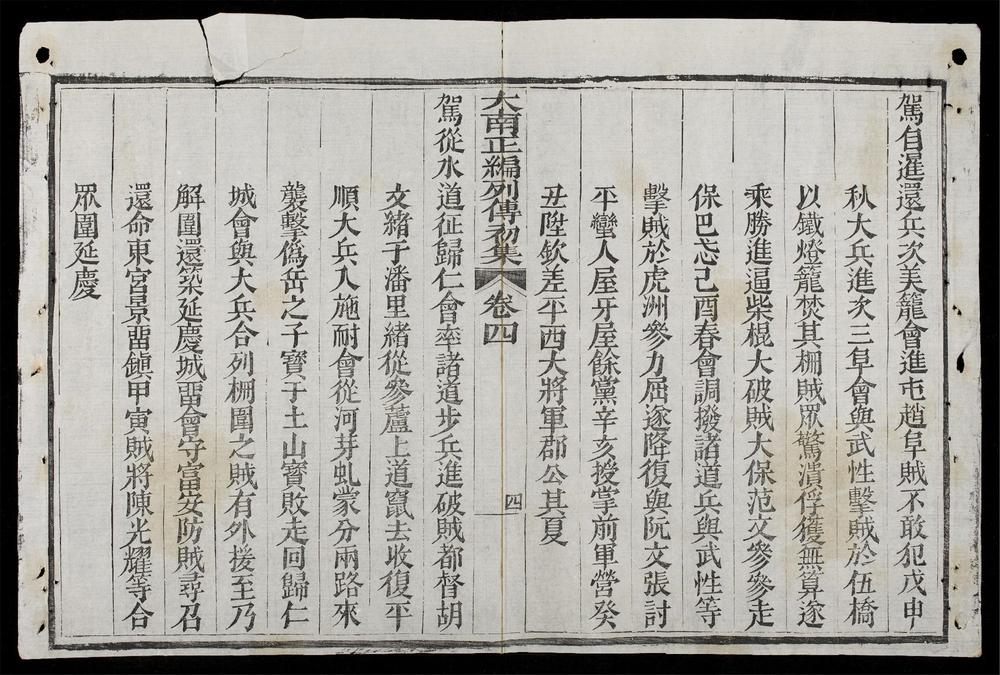 駕自暹還兵次美籠會進屯趙阜賊不敢犯戊申
秋大兵進次三阜會與武性擊賊於伍橋
以鐵燈籠焚其柵賊眾驚潰俘獲無算遂
乘勝進逼柴棍大破賊大保范文參參走
保巴忒己酉春會調撥諸道兵與武性等
擊賊於虎洲參力屈遂降復與阮文張討
平蠻人屋牙屋餘黨辛亥授掌前軍營癸
丑陞欽差平西大將軍郡公其夏
大南正編列傳初集 卷四 四
駕從水道征歸仁會率諸道步兵進破賊都督胡
文緒于潘里緒從參蘆上道竄去收復平
順大兵入施耐會從河芽虬蒙分兩路來
襲擊偽岳之子寶于土山寶敗走回歸仁
城會與大兵合列柵圍之賊有外援至乃
解圍還築延慶城留會守富安防賊尋召
還命東宮景留鎮甲寅賊將陳光耀等合
眾圍延慶